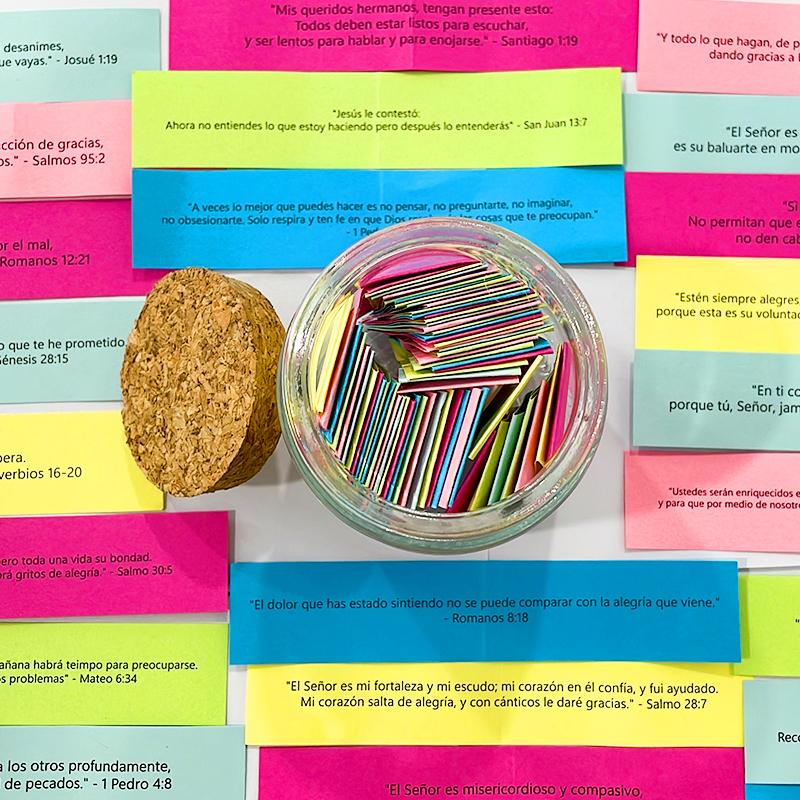 desanimes,
ue vayas." - Josué 1:19
"Mis queridos hermanos, tengan presente esto:
Todos deben estar listos para escuchar,
y ser lentos para hablar y para enojarse." - Santiago 1:19
"Y todo lo que hagan, de p
dando gracias a
"Jesús le contestó:
Ahora no entiendes lo que estoy haciendo pero después lo entenderás" - San Juan 13:7
cción de gracias,
os." - Salmos 95:2
"El Señor es
es su baluarte en mo
"A veces lo mejor que puedes hacer es no pensar, no preguntarte, no imaginar,
no obsesionarte. Solo respira y ten fe en que Dios cosas que te preocupan."
- 1 Ped
or el mal,
Romanos 12:21
"Si
No permitan que e
no den cab
"Estén siempre alegres,
porque esta es su voluntad
o que te he prometido.
Génesis 28:15
"En ti co
porque tú, Señor, jam
pera.
verbios 16-20
"Ustedes serán enriquecidos e
y para que por medio de nosotro
pero toda una vida su bondad.
brá gritos de alegría." - Salmo 30:5
"El dolor que has estado sintiendo no se puede comparar con la alegría que viene."
- Romanos 8:18
añana habrá teimpo para preocuparse.
os problemas" - Mateo 6:34
"El Señor es mi fortaleza y mi escudo; mi corazón en él confía, y fui ayudado.
Mi corazón salta de alegría, y con cánticos le daré gracias." - Salmo 28:7
a los otros profundamente,
de pecados." - 1 Pedro 4:8
Reco
"El Señor es misericordioso y compasivo,